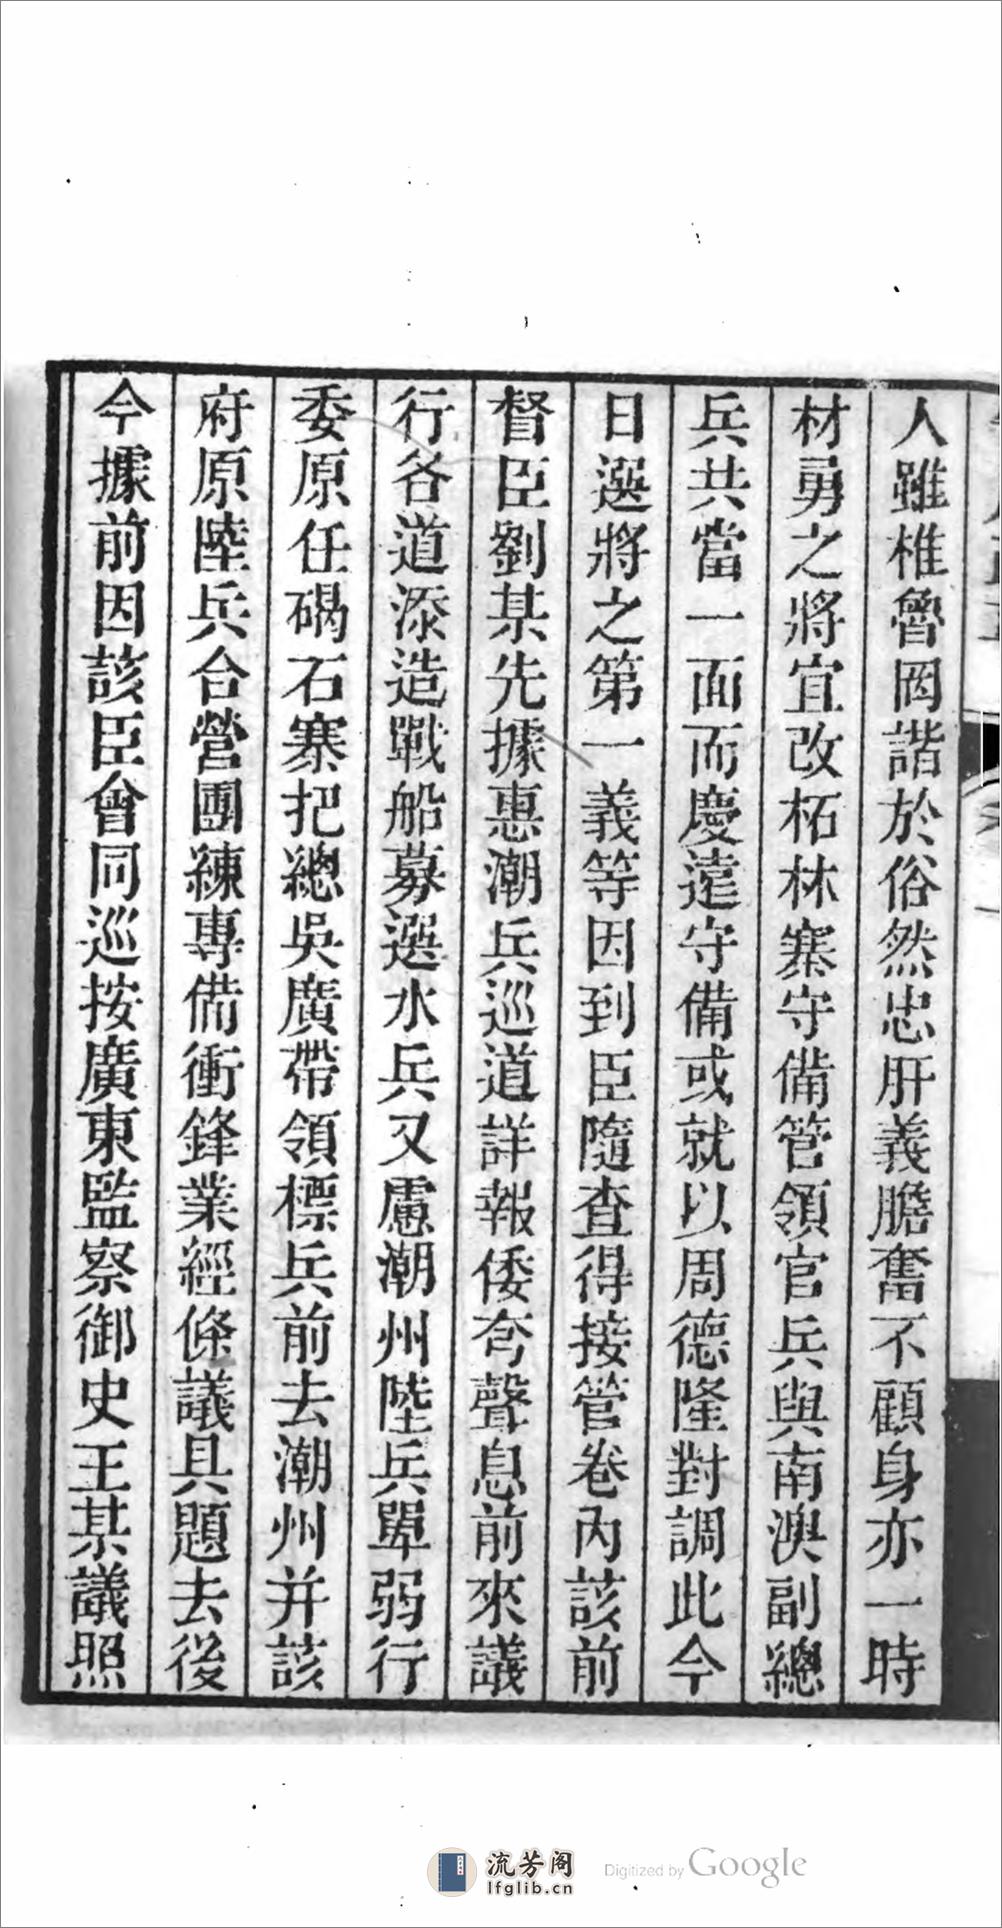 人雖椎魯罔諧於俗然忠肝義膽奮不顧身亦一時
材勇之將宜改柘林寨守備管領官兵與南澳副總
兵共當一面而慶遠守備或就以周德隆對調此今
日選將之第一義等因到臣隨查得接管卷內該前
督臣劉某先據惠潮兵巡道詳報倭夸聲息前來議
行各道添造戰船募選水兵又慮潮州陸兵單弱行
委原任碣石寨把總吳廣帶領標兵前去潮州并該
府原陸兵合營團練專備衝鋒業經條議具題去後
今據前因該臣會同巡按廣東監察御史王某議照
流芳阁
lfglib.cn
Digitized by Google